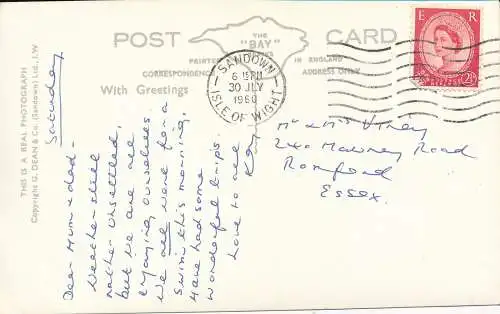 POST CARD
THE
"BAY"
SERIES
PRINTED IN ENGLAND
CORRESPONDENCE
ADDRESS ONLY
With Greetings
SANDOWN
6 15 PM
30 JLY
1960
ISLE OF WIGHT
E R
THIS IS A REAL PHOTOGRAPH
Copyright G. DEAN & Co. (Sandown) Ltd., I.W
Saturday
Dear Mum & dad -
Weather still
rather unsettled,
but we are all
enjoying ourselves
We all went for a
swim this morning.
Have had some
wonderful trips.
Love to all
Mr & Mrs
240 Mawney Road
Romford
Essex.